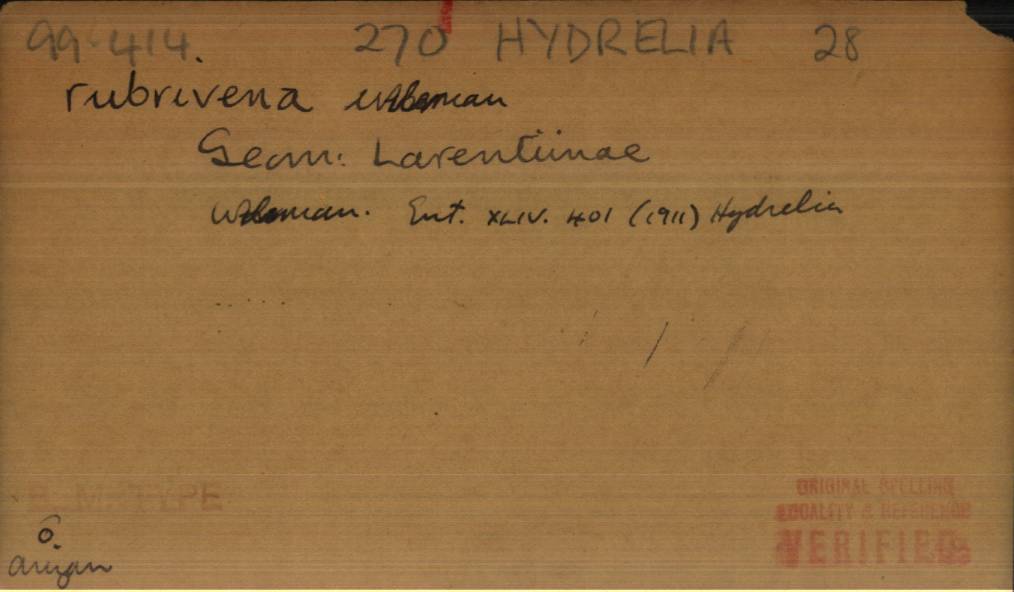 99-414. 270 HYDRELIA 28
rubrivena Wileman
Geom: Larentiinae
Wileman. Ent. XLIV. 401 (1911) Hydrelia
B. M. TYPE
ORIGINAL SPELLING
LOCALITY & REFERENCE
VERIFIED
Arizan